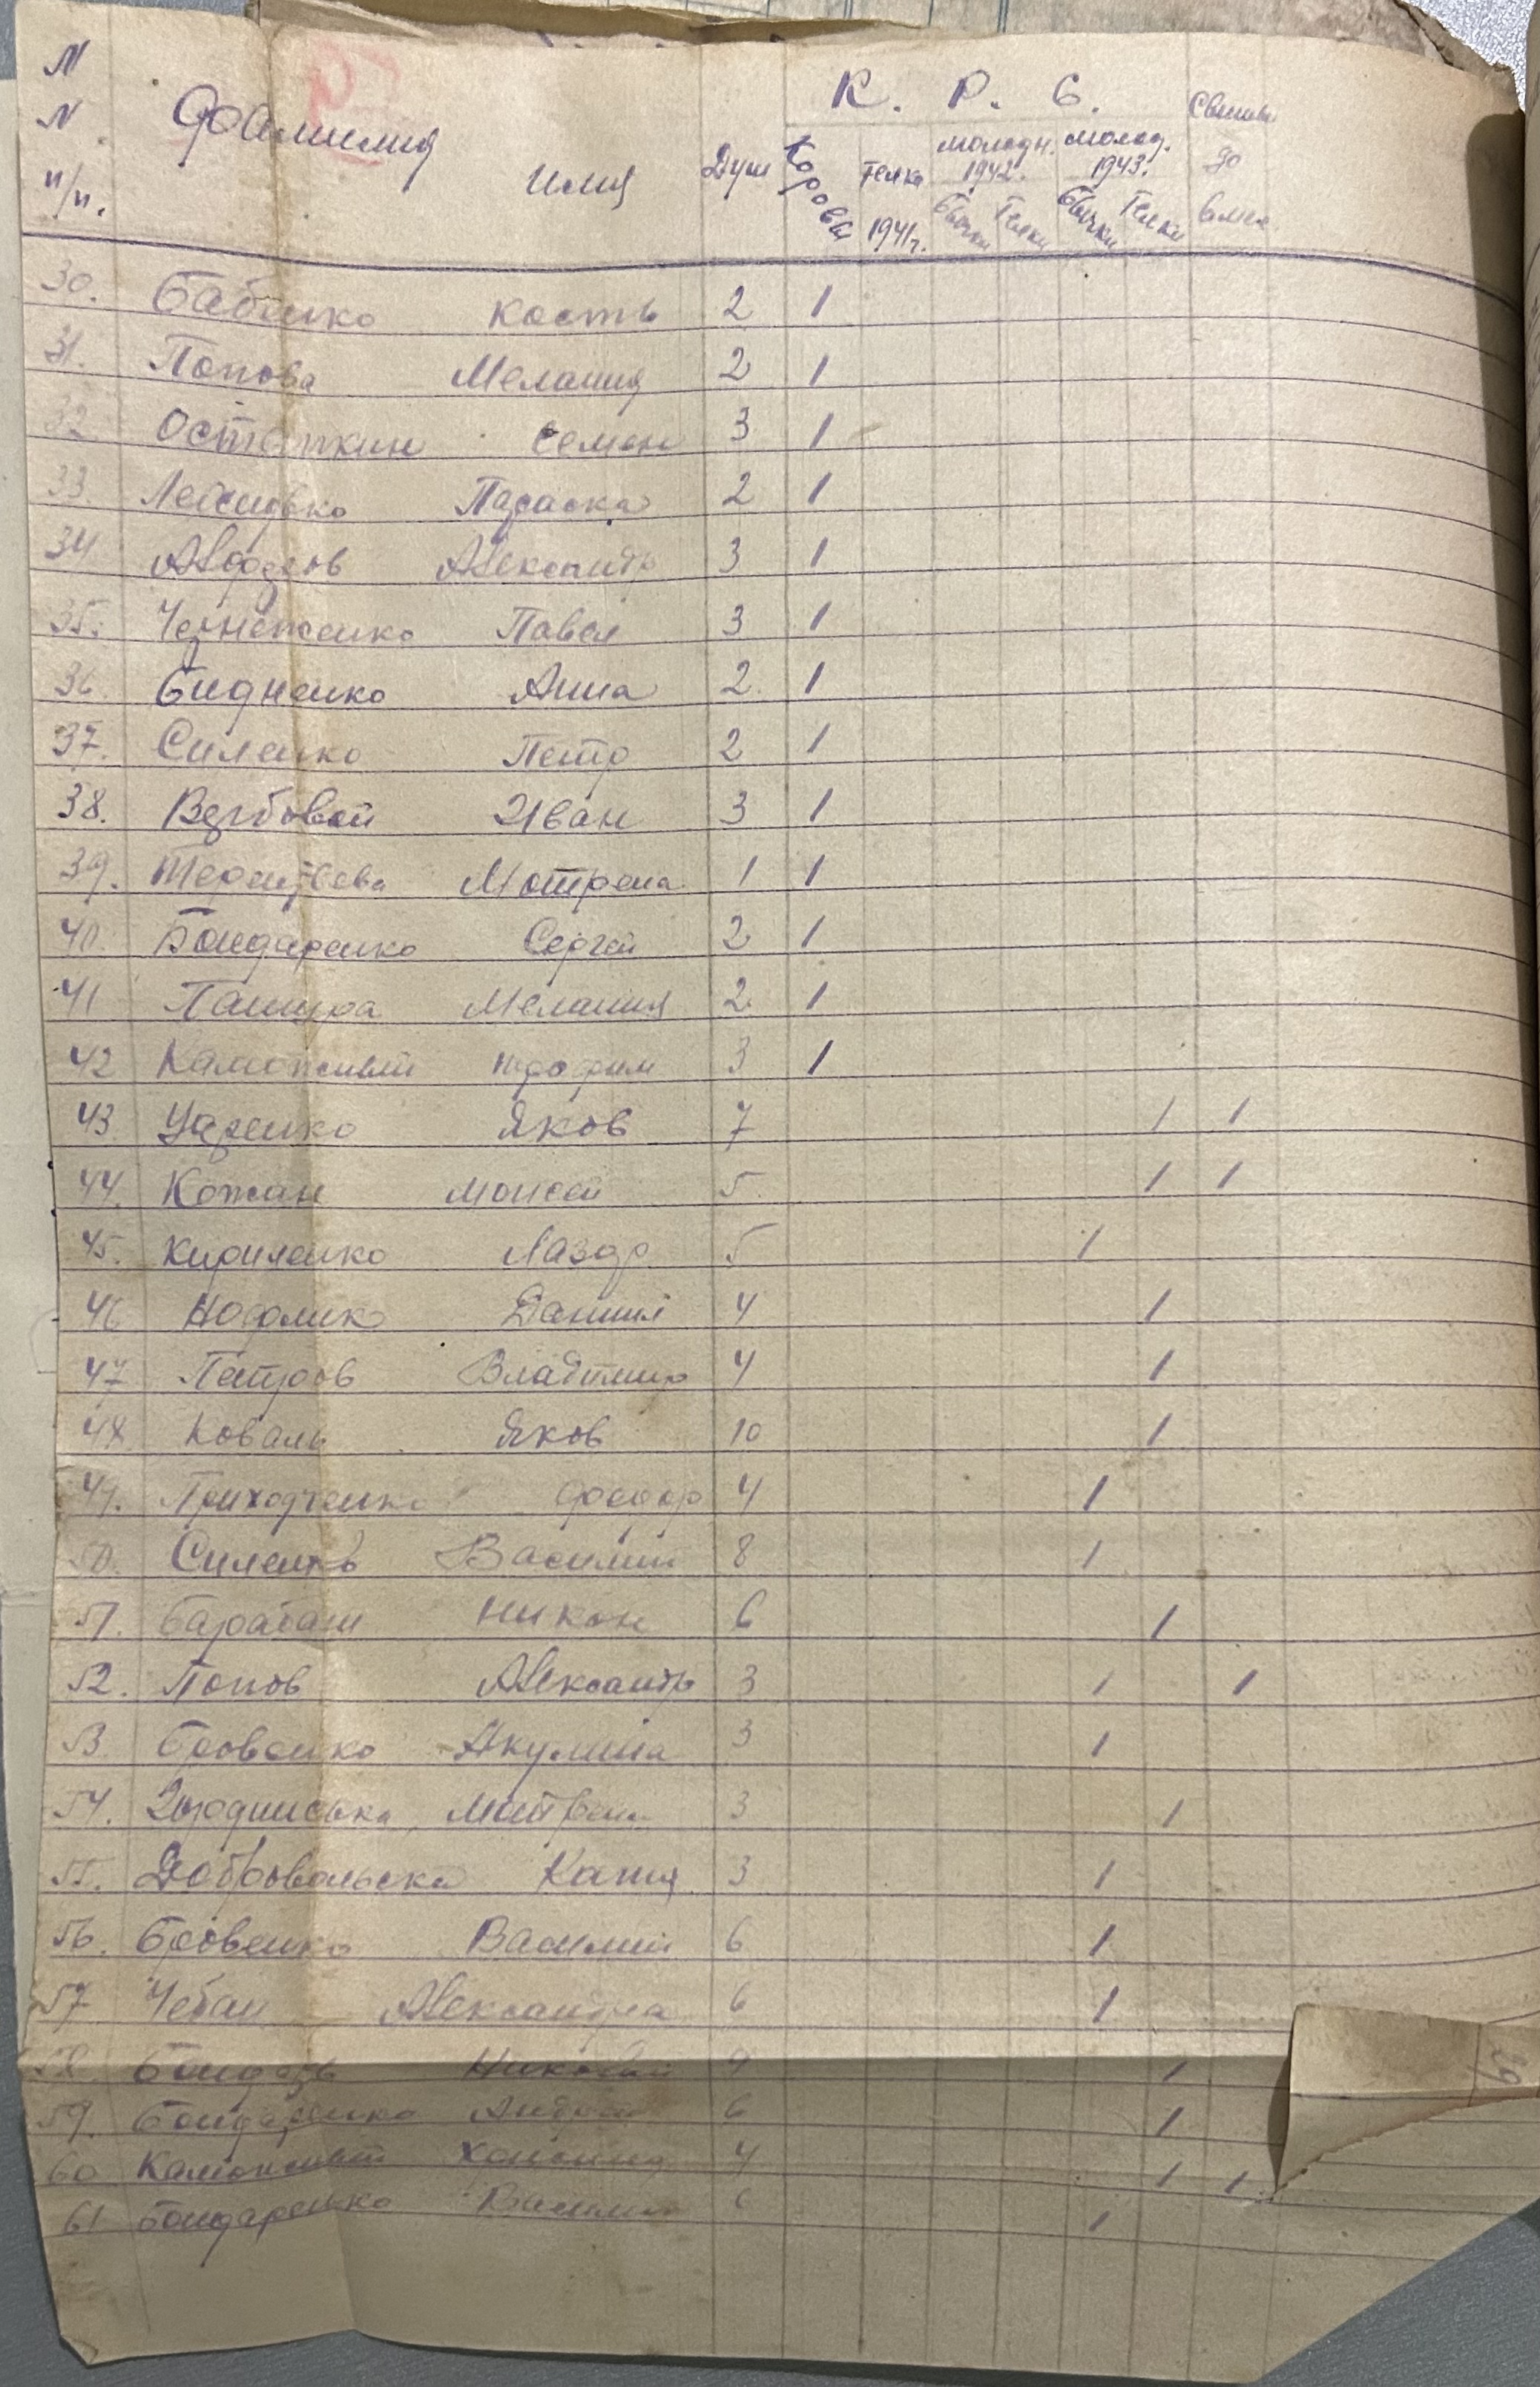 N N п/п. Фамилия Имя Душ К. Р. С. Свиньи до
Корова Телка 1941г. молодн. 1942г. Бычки Телки молод. 1943г. Бычки Телки
30. Бабенко Кость 2 1
31. Попова Мелания 2 1
32 Остапкин Семен 3 1
33. Параска 2 1
34 Авдеев Александр 3 1
35. Павел 3 1
36. Бидненко Анна 2. 1
37. Силенко Петр 2 1
38. Вербовой Иван 3 1
39. Терентьева Мотрена 1 1
40. Бондаренко Сергей 2 1
41 Мелания 2 1
42 Трофим 3 1
43 Царенко Яков 7 1 1
44. Кожан Моисей 5 1 1
45. Кириленко Лазор 5 1
46 Даниил 4 1
47 Петров Владимир 4 1
48 Коваль Яков 10 1
49. Приходченко Федор 4 1
50. Силенко Василий 8 1
51. Барабаш Никон 6 1
52. Попов Александр 3 1 1
53 Бровенко Акулина 3 1
54. 3 1
55. Добровольска Катя 3 1
56. Бровенко Василий 6 1
57 Чебан Александра 6 1
58. Бондарь Николай 9 1
59. Бондаренко Андрей 6 1
60 4 1 1
61 Бондаренко Василий 6 1